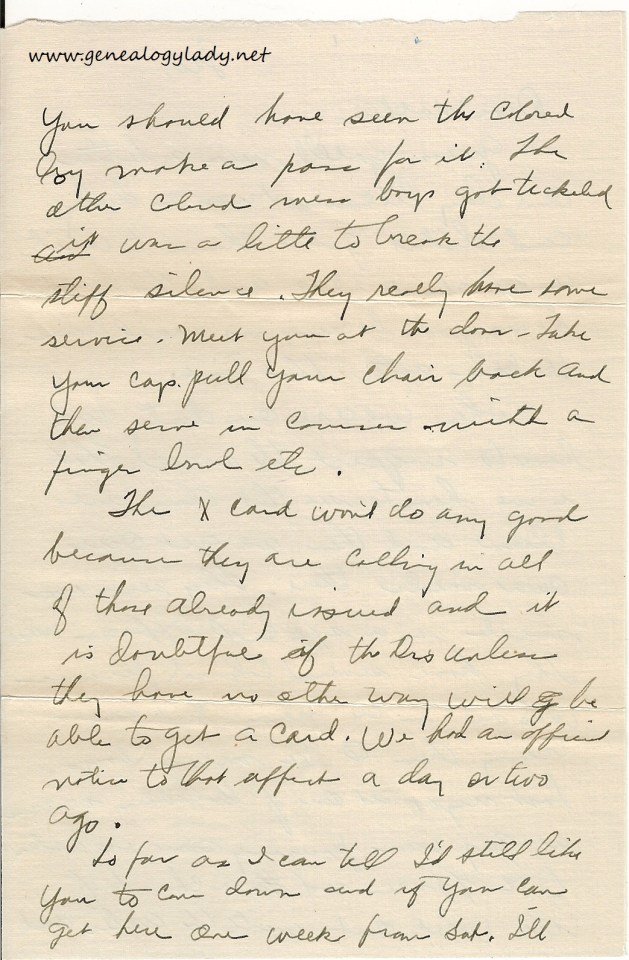 www.genealogylady.net
You should have seen the colored
boy make a pass for it. The
other colored mess boys got tickeled
it was a little to break the
stiff silence. They really have some
service. Meet you at the door - Take
your cap. pull your chair back and
then serve in courses with a
finger bowl etc.
The X card won't do any good
because they are calling in all
of those already issued and it
is doubtful if the Drs unless
they have no other way will be
able to get a card. We had an official
notice to that affect a day or two
ago.
So far as I can tell I'd still like
you to come down and if you can
get here one week from Sat. I'll